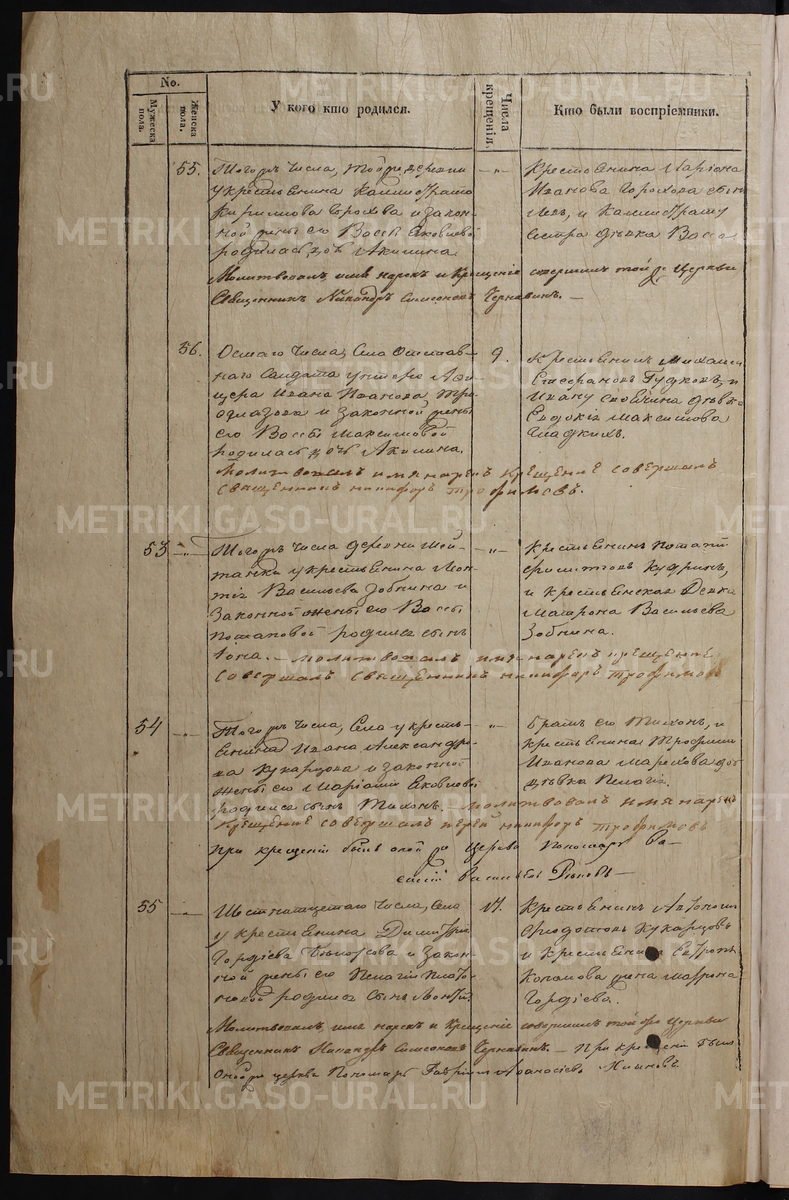 No.
Мужеска пола.
Женска пола.
У кого кто родился.
Числа крещенія.
Кто были воспріемники.
55.
Тогожъ Числа, той же деревни
у крестьянина Каллистрата
Кирилова Горохова и закон-
ной жены его Вассы Яковлевой
родилась дочь Акилина.
Молитвовалъ, имя нарекъ и Крещеніе совершилъ той же Церкви
Священникъ Никандръ Симеоновъ Чернавинъ. —
— „ —
Крестьянина Ларіона
Иванова Горохова сынъ
и Каллистрату
сестра дѣвка Васса
56.
Осмаго Числа, Села
наго Солдата унтеръ Афи-
цера Ивана Иванова
и Законной жены
его Вассы Максимовой
родилась дочь Акилина.
Молитвовалъ имя нарекъ крещеніе совершалъ
священникъ никифоръ трофимовъ.
9.
Крестьянинъ Михаилъ
Гудковъ, и
Ивану своячина дѣвка
Евдокія Максимова
Гладкихъ.
53
— „ —
Тогожъ Числа деревни Шай-
танки у крестьянина
Васильева Зобнина и
Законной жены его Вассы
Потаповой родился сынъ
Іона. — молитвовалъ имя нарекъ крещеніе
совершалъ священникъ никифоръ трофимовъ
— „ —
Крестьянинъ Потапъ
Филиповъ Кудринъ,
и крестьянская Девка
Матрона Васильева
Зобнина.
54
Тогожъ Числа, Села у кресть-
янина Ивана Александро-
ва Кукарцова и законной
жены его Маріаміи Яковлевой
родился сынъ Тихонъ — молитвовалъ имя нарекъ
крещеніе совершалъ іерей никифоръ трофимовъ
при крещеніи былъ оной же Церкви пономарь Ва-
силій Васильевъ
— „ —
Братъ его Тихонъ, и
крестьянина Трофима
Иванова дочь
дѣвка Пелагія.
55
Шестнатцетаго Числа, Села
у крестьянина Димитрія
Гордіева и Закон-
ной жены его Пелагіи Плато-
новой родился сынъ Леонтій.
Молитвовалъ, имя нарекъ и Крещеніе совершилъ той же Церкви
Священникъ Никандръ Симеоновъ Чернавинъ. — При крещеніи былъ
оной же церкви Пономарь Гавріилъ Афанасіевъ
17.
Крестьянинъ Автономъ
Федотовъ Кукарцовъ
и Крестьянина
жена Матрона
Гордіева.
METRIKI.GASO-URAL.RU